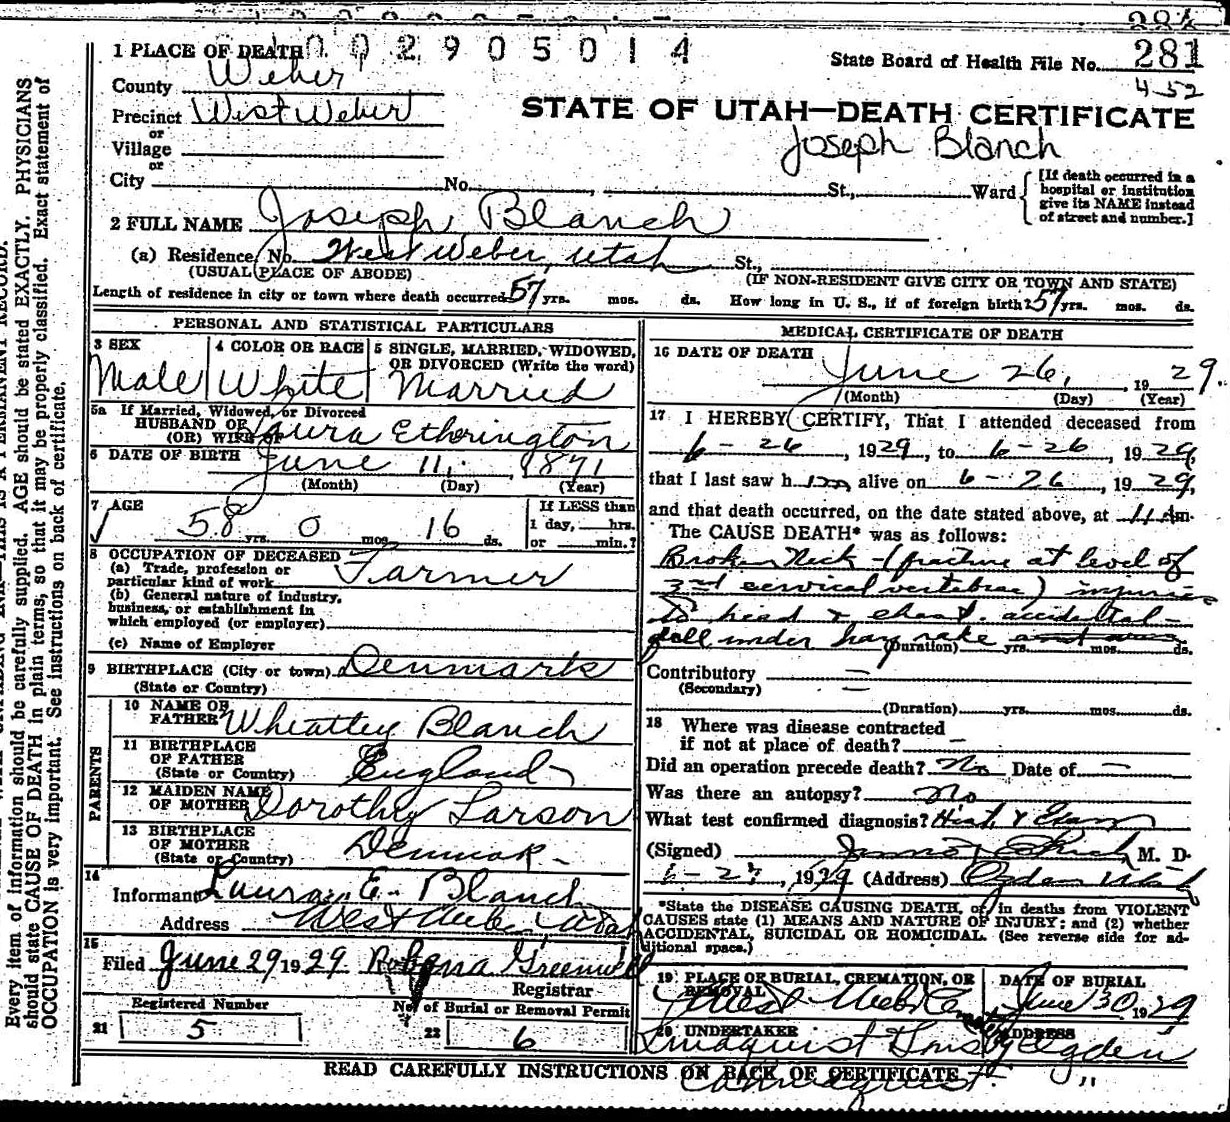 1 PLACE OF DEATH
1002905014
State Board of Health File No. 281
452
County Weber
Precinct West Weber
or
Village
or
STATE OF UTAH—DEATH CERTIFICATE
Joseph Blanch
City No. , St., Ward
[If death occurred in a hospital or institution give its NAME instead of street and number.]
2 FULL NAME Joseph Blanch
(a) Residence, No. West Weber, Utah St.,
(USUAL PLACE OF ABODE) (IF NON-RESIDENT GIVE CITY OR TOWN AND STATE)
Length of residence in city or town where death occurred 57 yrs. mos. ds. How long in U. S., if of foreign birth? 57 yrs. mos. ds.
PERSONAL AND STATISTICAL PARTICULARS
3 SEX 4 COLOR OR RACE 5 SINGLE, MARRIED, WIDOWED, OR DIVORCED (Write the word)
Male White Married
5a If Married, Widowed, or Divorced
HUSBAND OF
(OR) WIFE OF Laura Etherington
6 DATE OF BIRTH June 11, 1871
(Month) (Day) (Year)
7 AGE
58 yrs. 0 mos. 16 ds.
If LESS than
1 day, hrs.
or min.?
8 OCCUPATION OF DECEASED
(a) Trade, profession or
particular kind of work Farmer
(b) General nature of industry,
business, or establishment in
which employed (or employer)
(c) Name of Employer
9 BIRTHPLACE (City or town) Denmark
(State or Country)
PARENTS
10 NAME OF
FATHER Wheatley Blanch
11 BIRTHPLACE
OF FATHER
(State or Country) England
12 MAIDEN NAME
OF MOTHER Dorothy Larson
13 BIRTHPLACE
OF MOTHER
(State or Country) Denmark -
14
Informant Laura E. Blanch
Address West Weber, Utah
15
Filed June 29 1929 Robena Greenwell
Registrar
Registered Number No. of Burial or Removal Permit
21 5 22 6
MEDICAL CERTIFICATE OF DEATH
16 DATE OF DEATH
June 26, 1929.
(Month) (Day) (Year)
17 I HEREBY CERTIFY, That I attended deceased from
6-26, 1929, to 6-26, 1929,
that I last saw him alive on 6-26, 1929,
and that death occurred, on the date stated above, at 11 Am.
The CAUSE DEATH* was as follows:
Broken Neck - (fracture at level of
cervical vertebrae) injuries
to head & chest. accidental -
fall under hay rake
(Duration) yrs. mos. ds.
Contributory —
(Secondary) —
(Duration) yrs. mos. ds.
18 Where was disease contracted
if not at place of death? —
Did an operation precede death? No Date of —
Was there an autopsy? no
What test confirmed diagnosis? Hist. & Exam
(Signed) M. D.
6-27, 1929 (Address) Ogden Utah
*State the DISEASE CAUSING DEATH, or, in deaths from VIOLENT
CAUSES state (1) MEANS AND NATURE OF INJURY; and (2) whether
ACCIDENTAL, SUICIDAL OR HOMICIDAL. (See reverse side for ad-
ditional space.)
19 PLACE OF BURIAL, CREMATION, OR REMOVAL DATE OF BURIAL
West Weber June 30 1929
20 UNDERTAKER ADDRESS
Lindquist & Sons Ogden
Lindquist "
READ CAREFULLY INSTRUCTIONS ON BACK OF CERTIFICATE.
Every item of information should be carefully supplied. AGE should be stated EXACTLY. PHYSICIANS
should state CAUSE OF DEATH in plain terms, so that it may be properly classified. Exact statement of
OCCUPATION is very important. See instructions on back of certificate.